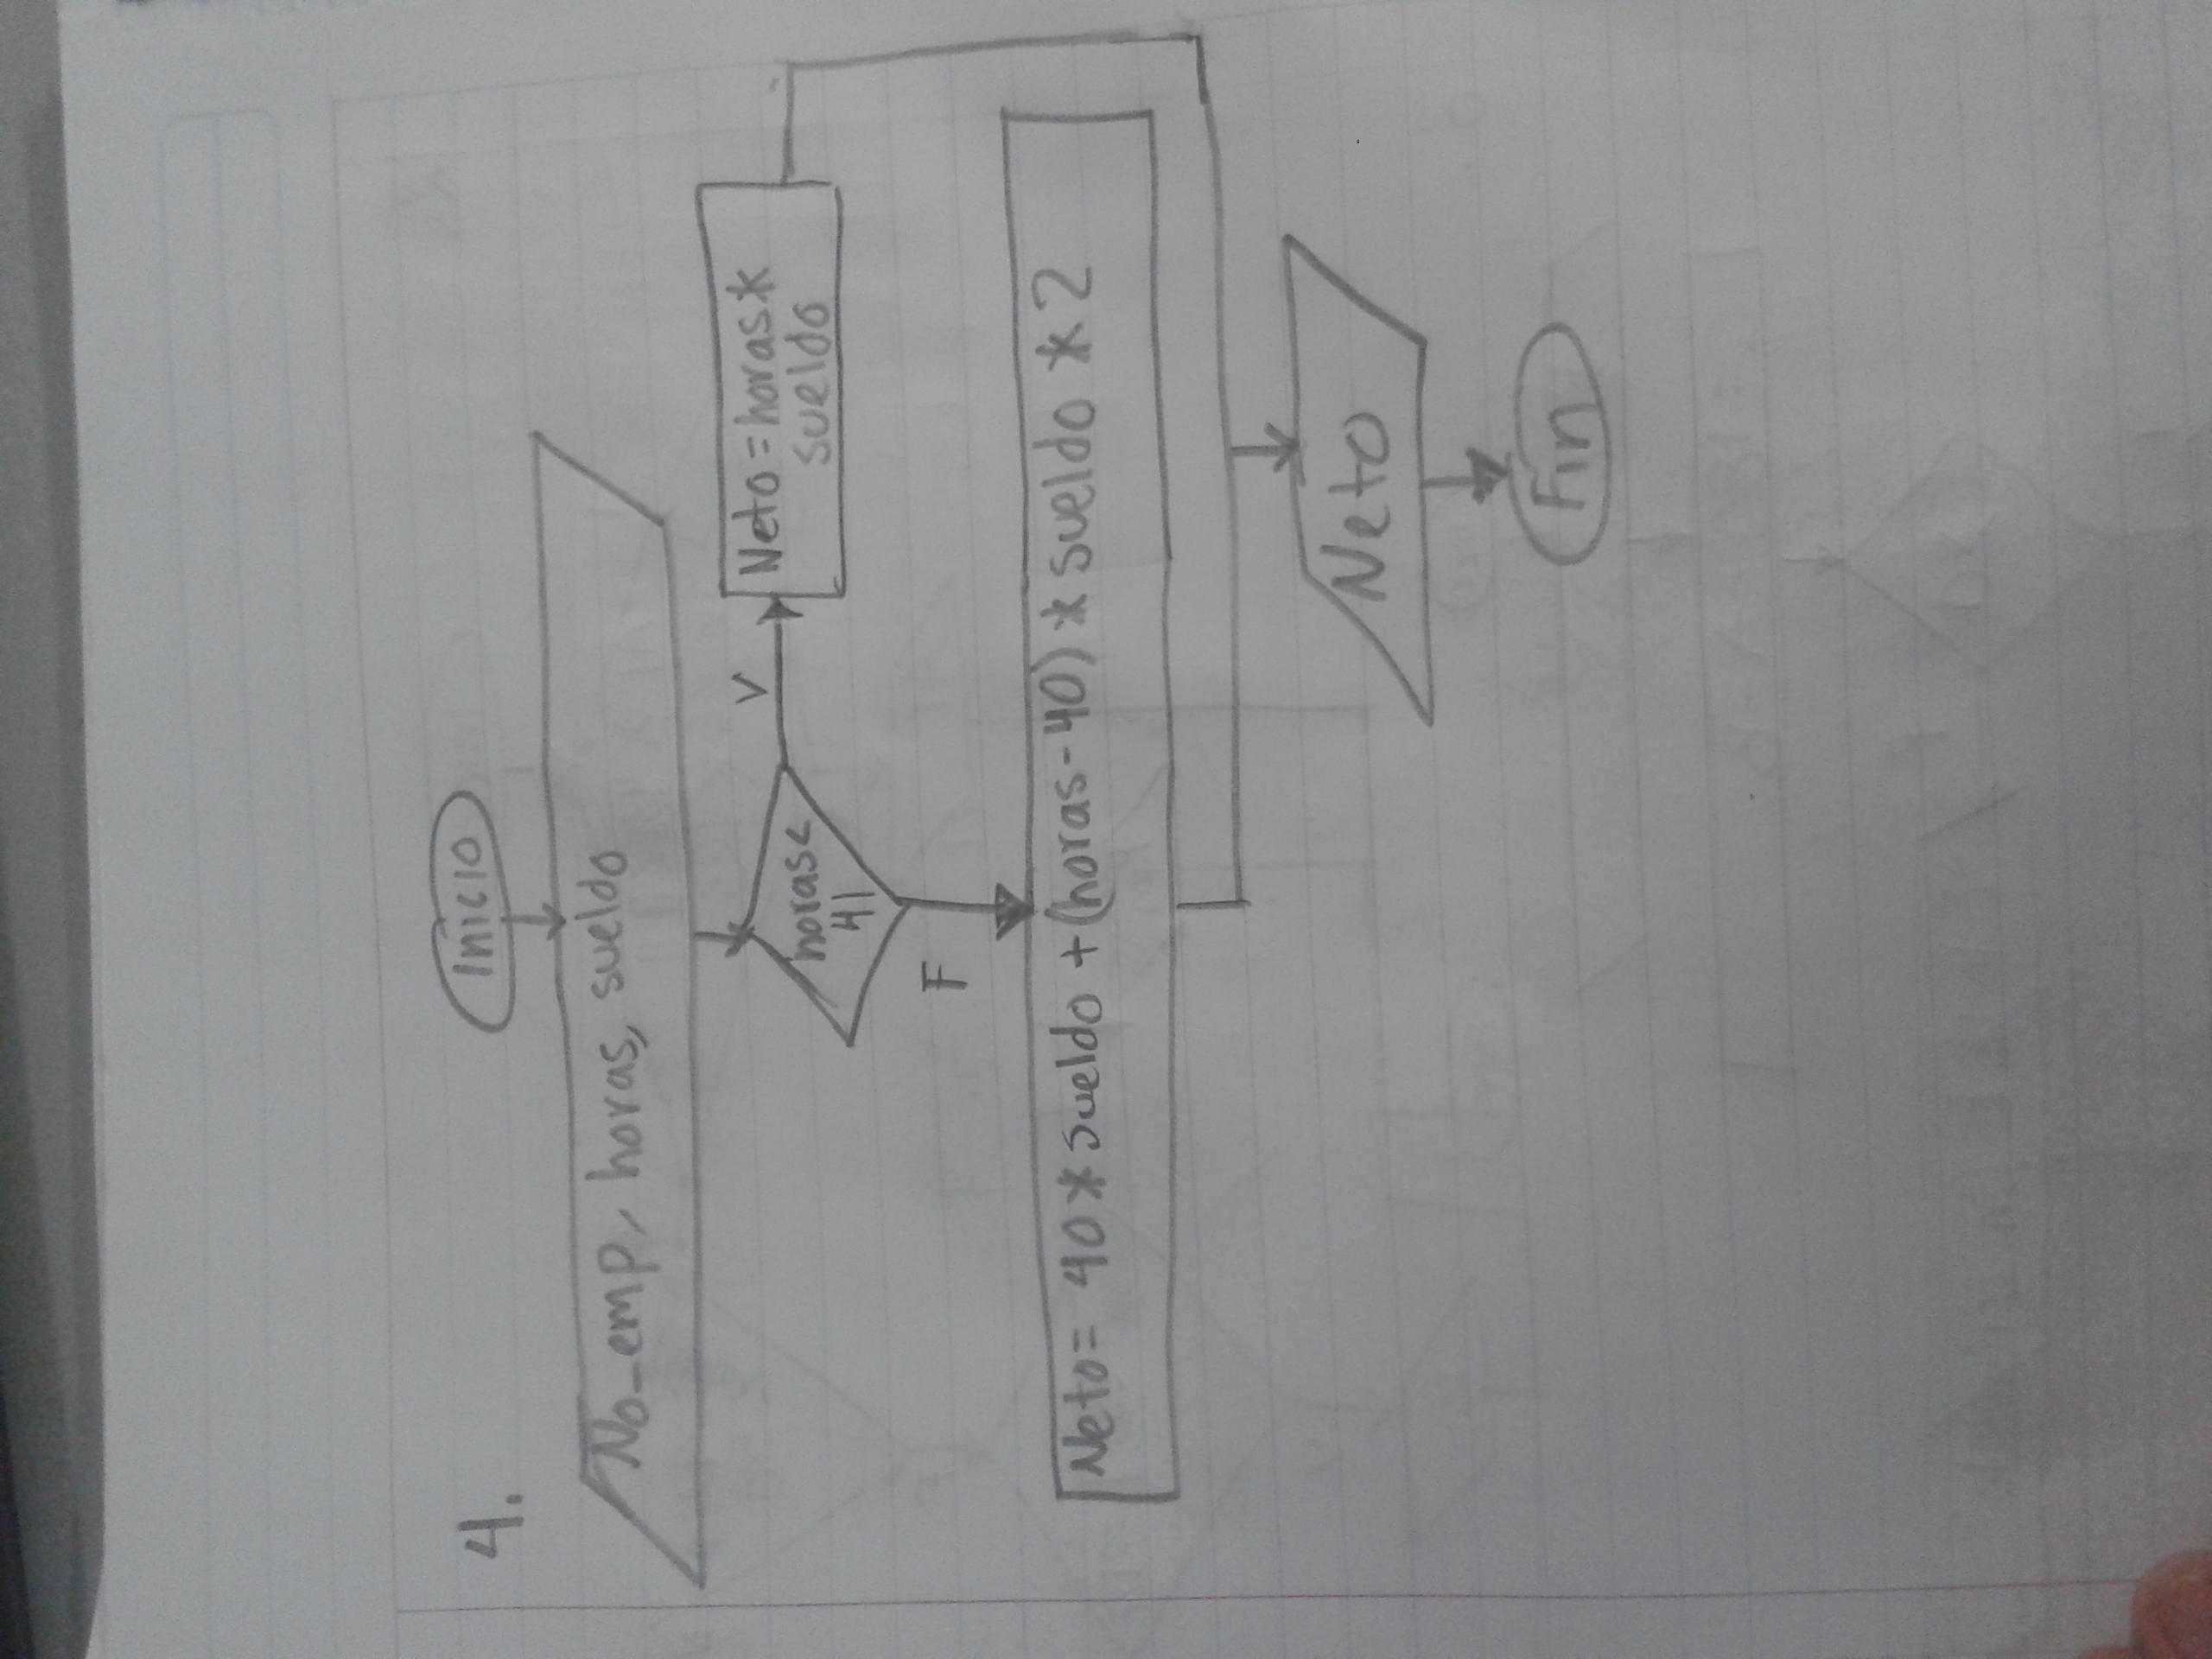 4.
Inicio
No_emp, horas, sueldo
horas<
41
V
Neto=horas*
sueldo
F
Neto= 40*sueldo+(horas-40)*sueldo*2
Neto
Fin